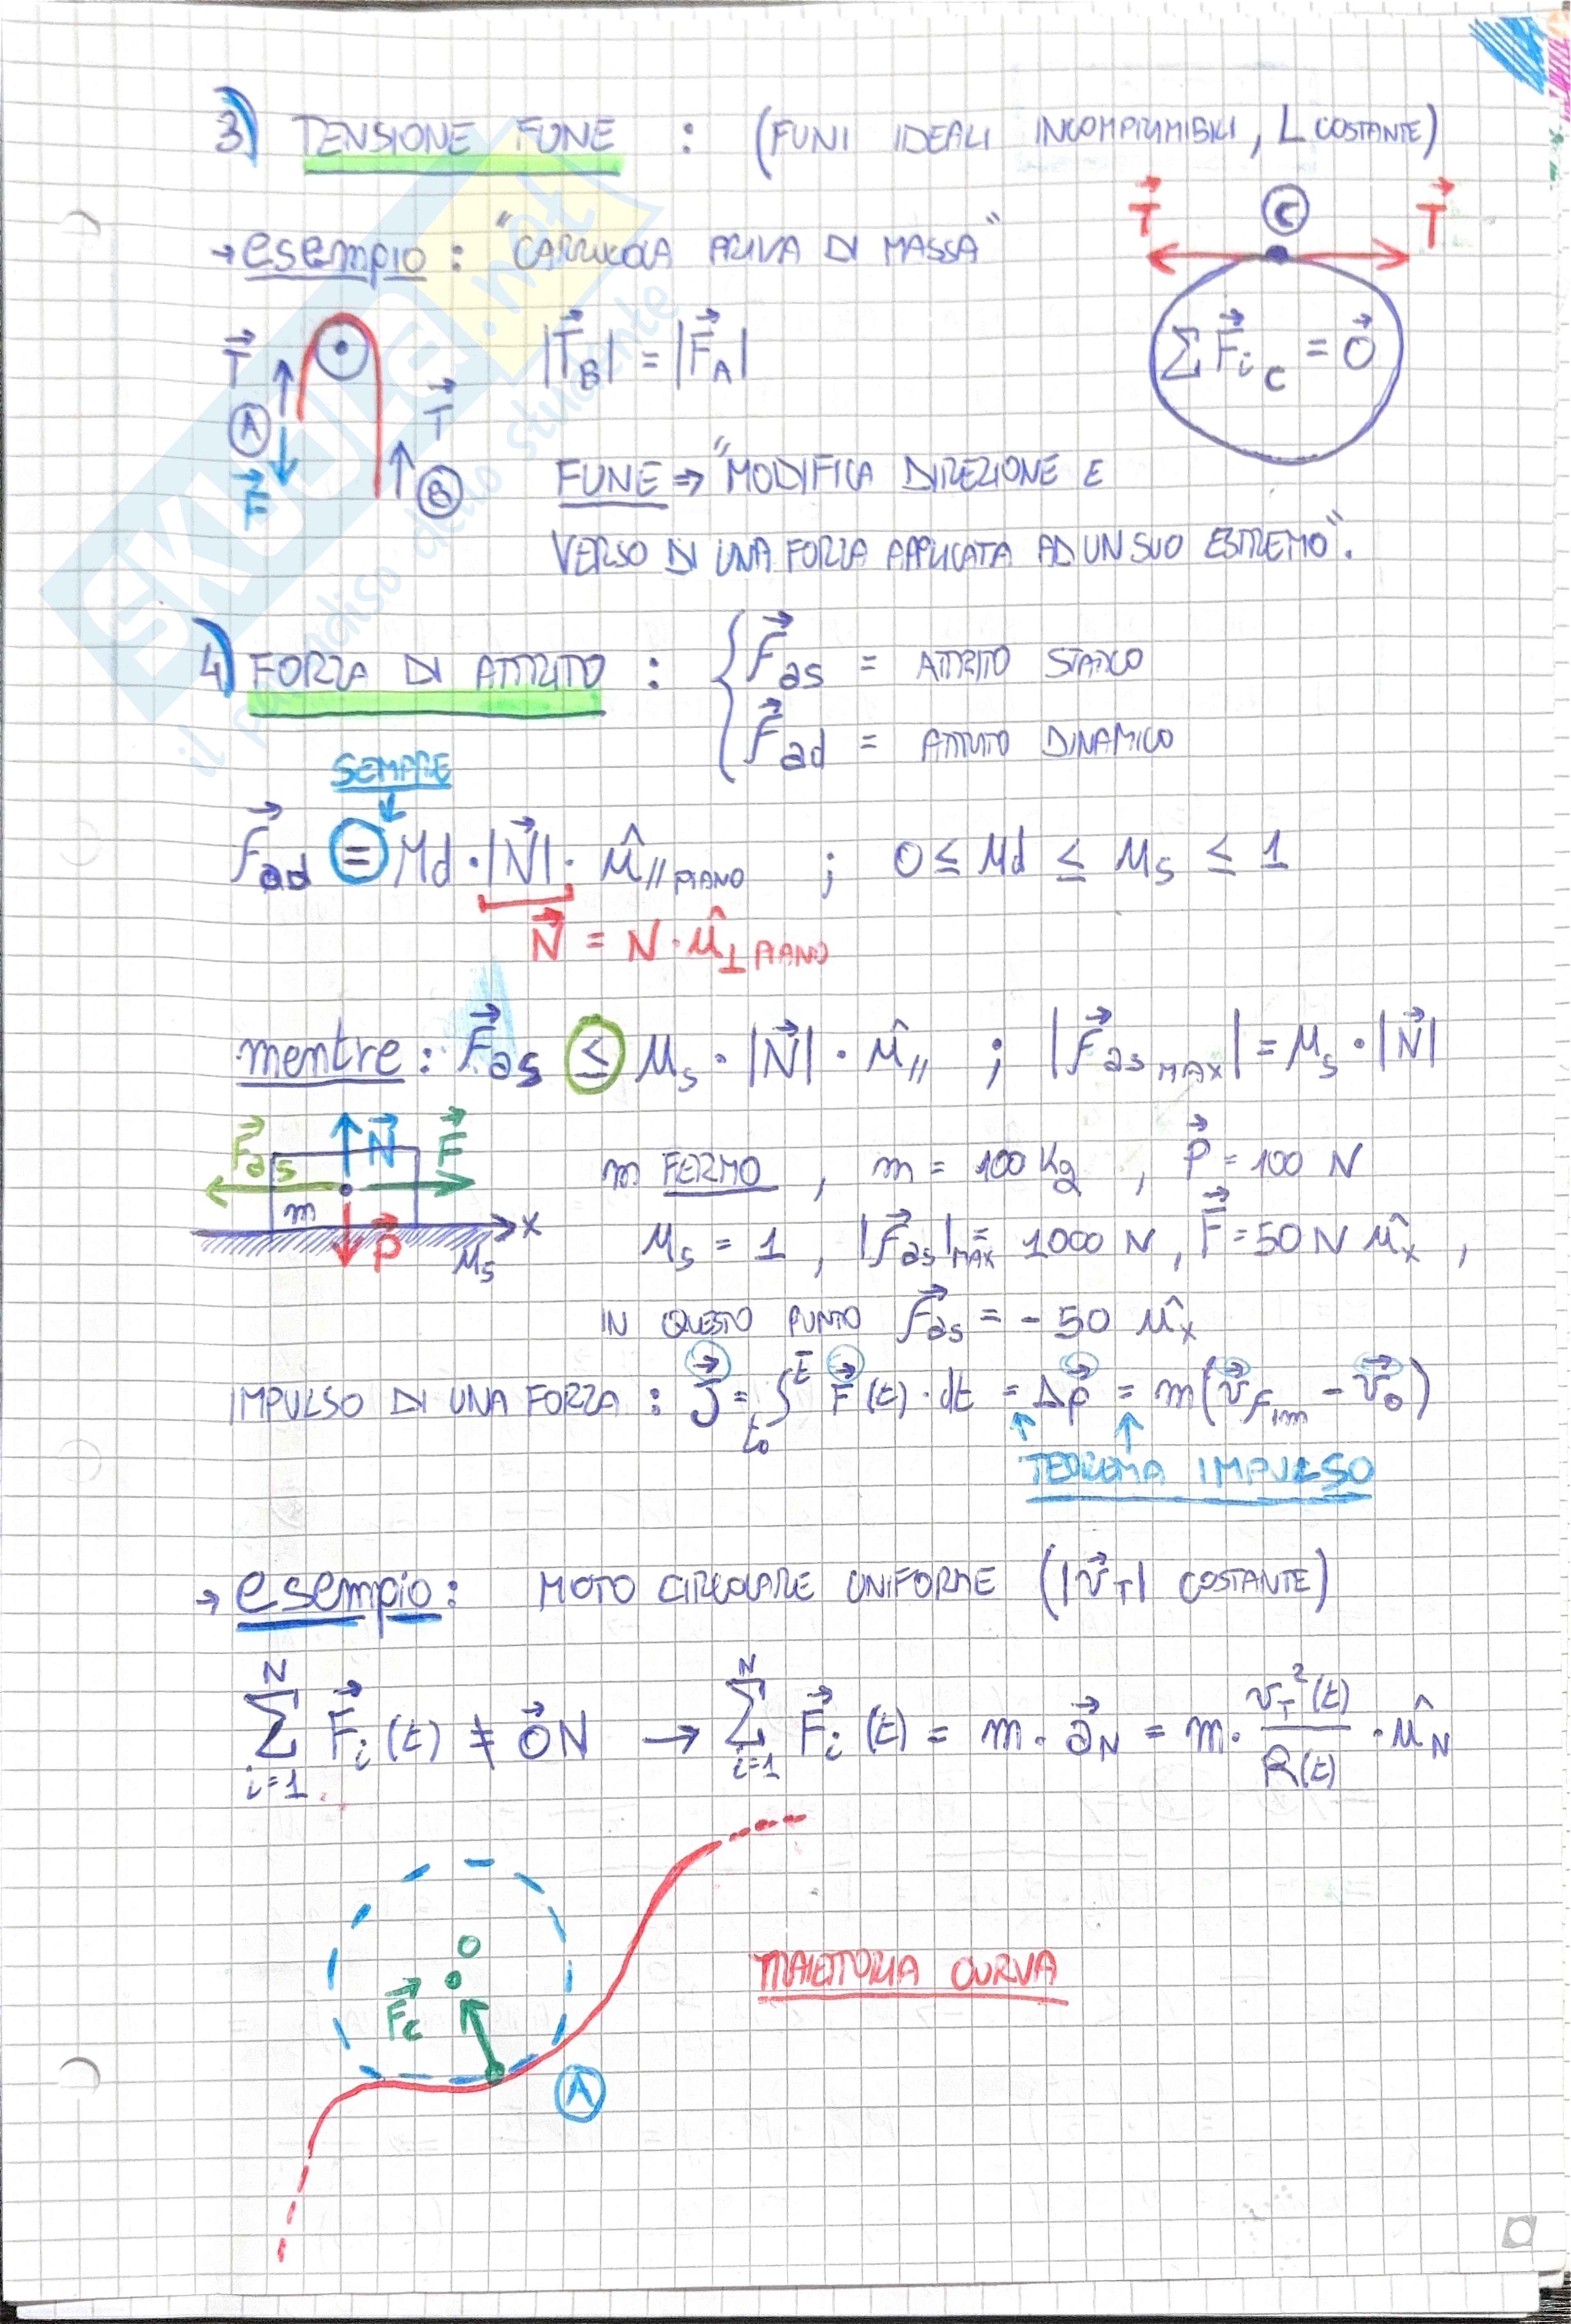 3) TENSIONE FUNE : (FUNI IDEALI INCOMPRIMIBILI, L COSTANTE)
→ esempio : "CARRUCOLA PRIVA DI MASSA"
T⃗ C T⃗
T⃗ A F⃗ T⃗ B
|T⃗_B| = |F⃗_A|
∑ F⃗_i_C = 0⃗
FUNE ⇒ "MODIFICA DIREZIONE E
VERSO DI UNA FORZA APPLICATA AD UN SUO ESTREMO".
4) FORZA DI ATTRITO : { F⃗_as = ATTRITO STATICO
F⃗_ad = ATTRITO DINAMICO
SEMPRE
F⃗_ad = μd · |N⃗| · û_// PIANO ; 0 ≤ μd ≤ μs ≤ 1
N⃗ = N · û_⊥ PIANO
mentre : F⃗_as ≤ μs · |N⃗| · û_// ; |F⃗_as MAX| = μs · |N⃗|
F⃗_as N⃗ F⃗ m P⃗ μs x
m FERMO , m = 100 Kg , P⃗ = 100 N
μs = 1 , |F⃗_as|_MAX = 1000 N , F⃗ = 50 N û_x ,
IN QUESTO PUNTO F⃗_as = - 50 û_x
IMPULSO DI UNA FORZA : J⃗ = ∫_t₀^t̄ F⃗(t) · dt = Δp⃗ = m(v⃗_Fin - v⃗_0)
TEOREMA IMPULSO
→ esempio : MOTO CIRCOLARE UNIFORME (|v⃗_T| COSTANTE)
∑_{i=1}^{N} F⃗_i (t) ≠ 0⃗ N → ∑_{i=1}^{N} F⃗_i (t) = m · a⃗_N = m · v_T²(t) / R(t) · û_N
O
F⃗_c
A
TRAIETTORIA CURVA
SKUOLA.net
il paradiso dello studente